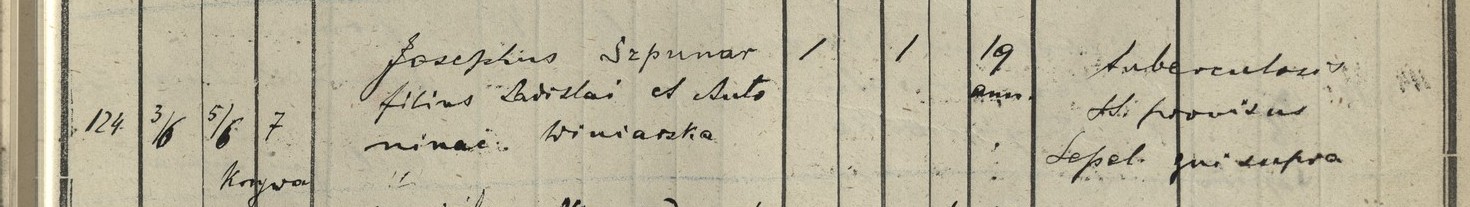 Josephus Szpunar 1 1 19
filius Ladislai et Anto ann. tuberculosis
124 3/6 5/6 7 ninae Winiarska SS. provisus
Sepel. qui supra
Krzywa "